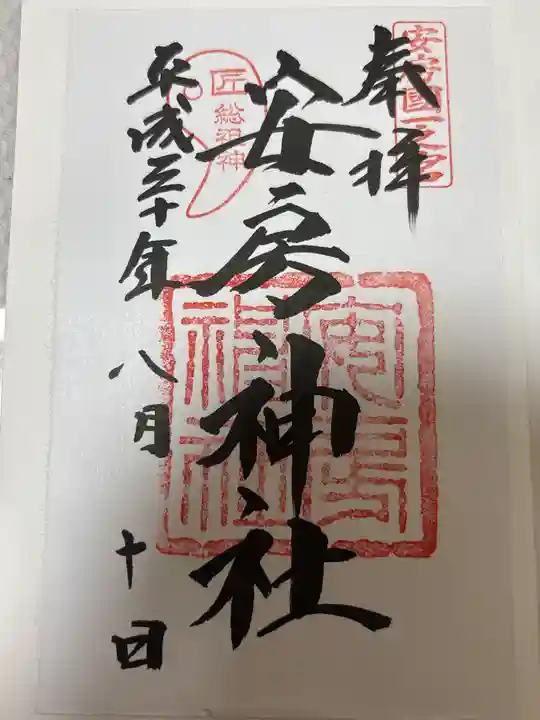 安房國一之宮
奉拝
安房神社
安房神社
匠
総祖神
平成三十年八月十日